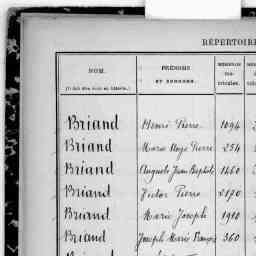 RÉPERTOIRE
NOM.
(Il doit être écrit en bâtarde.)
PRÉNOMS
ET SURNOMS.
NUMÉROS
ma-
tricules.
Briand Henri Pierre 1094
Briand Marie Ange Pierre 254
Briand Auguste Jean Baptiste 1460
Briand Victor Pierre 2170
Briand Marie Joseph 1910
Briand Joseph Marie François 360